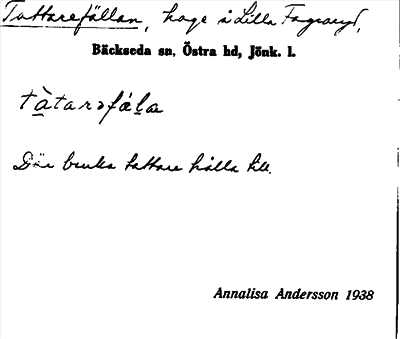 Tattarefällan, hage i Lilla Fagraryd,
Bäckseda sn, Östra hd, Jönk. l.
tàtarəfæḷa
Där bruka tattare hålla till.
Annalisa Andersson 1938